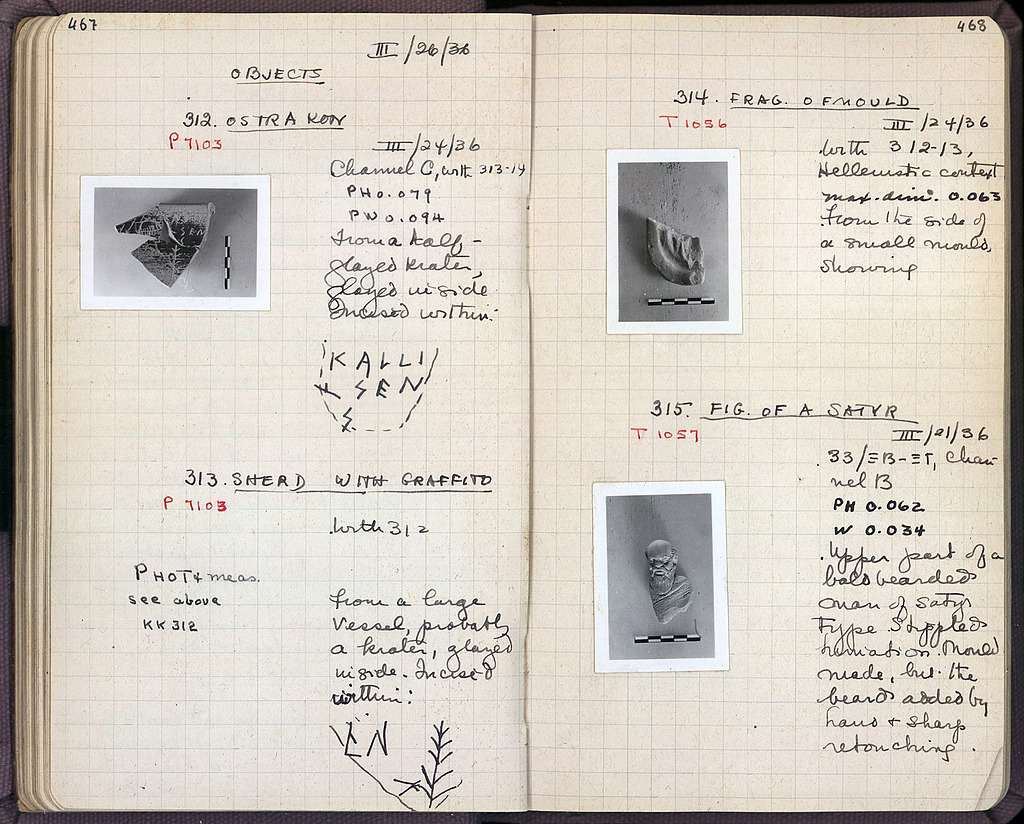 467
III/26/36
OBJECTS
312. OSTRAKON
P 7103
III/24/36
Channel C, with 313-14
PH 0.079
PW 0.094
From a half-
glazed krater,
glazed inside
Incised within:
KALLI
KSEN
S
313. SHERD WITH GRAFFITO
P 7103
With 312
PHOT & meas.
see above
KK 312
From a large
vessel, probably
a krater, glazed
inside. Incised
within:
EN
468
314. FRAG. OF MOULD
T 1056
III/24/36
With 312-13,
Hellenistic context
max. dim. 0.063
From the side of
a small mould,
showing
315. FIG. OF A SATYR
T 1057
III/21/36
33/ΞΒ-ΞΤ, Chan-
nel B
PH 0.062
W 0.034
Upper part of a
bald bearded
man of Satyr
Type. Stippled
himation. Mould
made, but the
beard added by
hand & sharp
retouching.